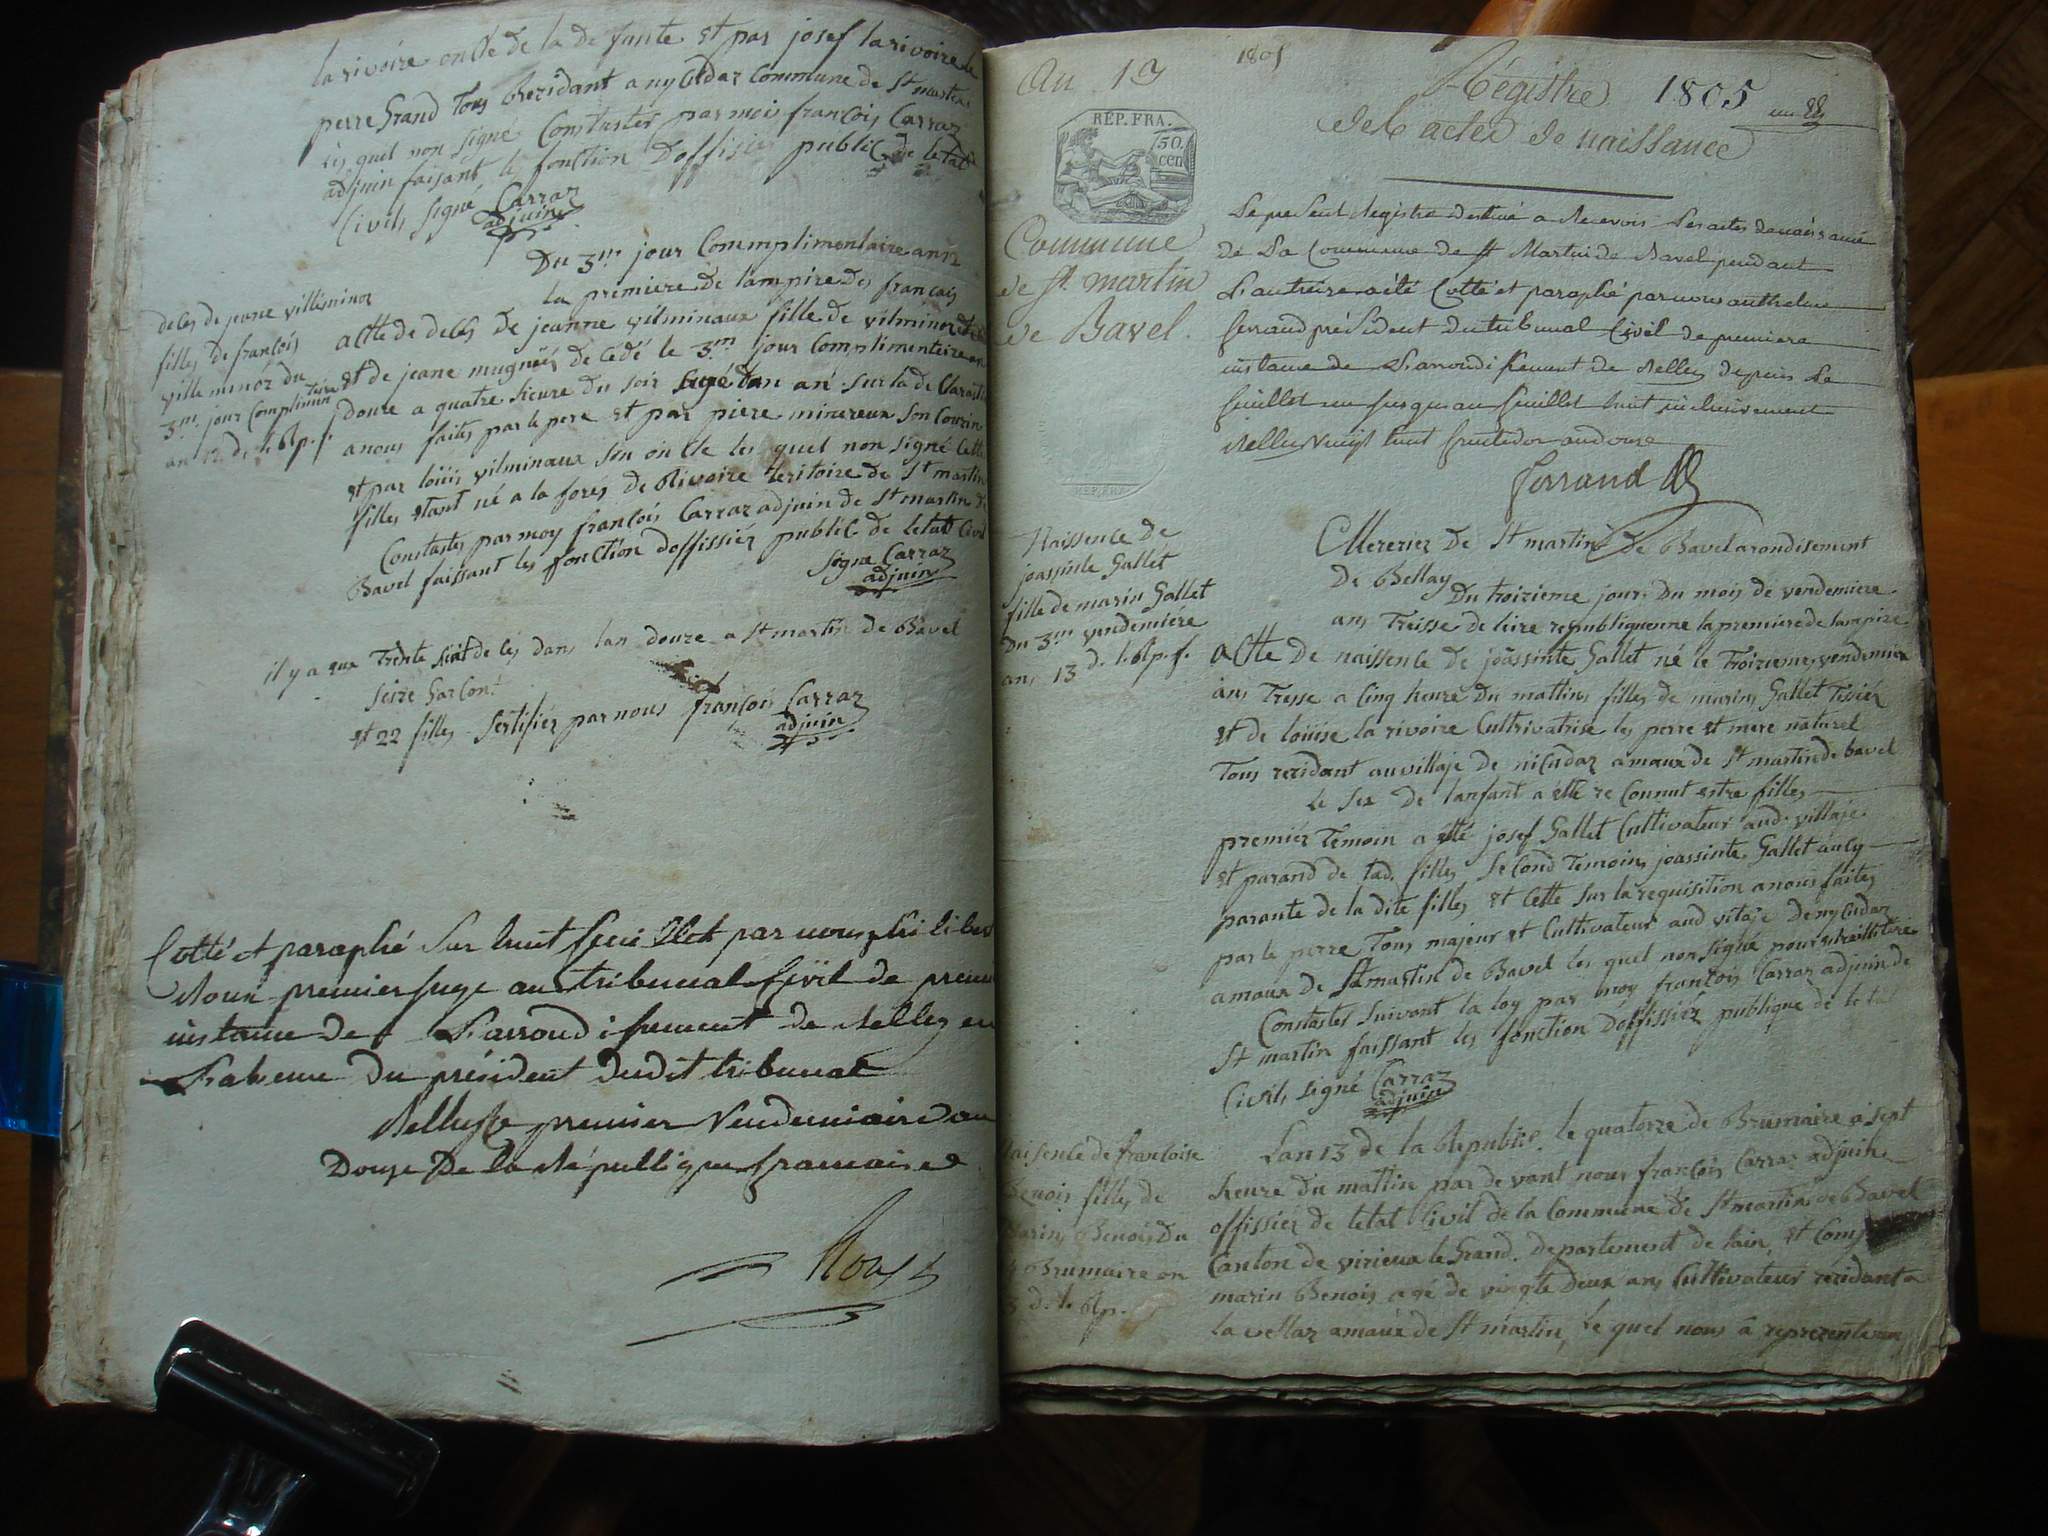 la rivoire oncle de la defante et par josef la rivoire
perre grand Tous Rezidant a nyCudaz Commune de St martin
les quel non signé Constaster par moi françois Carraz
adjuin faisant le fonction Doffisier public de letat
Civils signé Carraz
adjuin
Du 3me jour Commplimentaire an 12
la premiere de lampire des français
deles de jeane villiminoz
fille de françois
ville minoz du
3me jour Complimentére
an 12 de l. Rp. f.
actte de deles de jeanne vilminaux fille de vilminoz
et de jeane mugniér de cedé le 3me jour Complimenteire
douze a quatre heure du soir agé dun an sur la declaration
a nous faites par le pere et par pierre minereux son Couzin
et par loüis vilminaux son oncle les quel non signé Cette
filles etant né a la forés de Rivoire teritoire de St martin
Constaster par moy françois Carraz adjuin de St martin de
Bavel faissant les fonction doffissiér public de letat Civil
signé Carraz
adjuin
il y a eux Trente huit deles dans lan douze a St martin de Bavel
seize garcons
et 22 filles sertifiér par nous françois Carraz
adjuin
Cotté et paraphé sur huit feuillet par nous
Roux premier juge au tribunal Civil de premiere
instance de L'arrondissement de Belley en
L'absence du président dudit tribunal
Belley le premier Vendemiaire an
Douze De la République francaise
Roux
An 13
1805
Régistre 1805
un
des actes de naissance
RÉP. FRA.
50.
cen
Commune
de St. martin
de Bavel.
Le present Registre destiné a Recevoir Les actes de naissance
de La Commune de St Martin de Bavel pendant
L'an treize a été Cotté et paraphé par nous anthelme
ferrand président du tribunal Civil de premiere
instance de L'arrondissement de Belley depuis Le
feuillet un jusqu au feuillet huit inclusivement
Belley vingt huit fructidor an douze
ferrand
Naissence de
joassinte Gallet
fille de marin Gallet
Du 3me vendemiére
an 13 d. l. Rp. f.
Mererier de St martin de Bavel arondisement
De Bellay
Du troizieme jour Du mois de vendemiere
ans Treisse de leire republiquenne la premiere de lampire
actte De naissence de joassinte Gallet né le Troizieme vendemier
ans Tresse a Cinq heure Du mattins filles de marins Gallet Tisiér
et de loüise la rivoire Cultrivatrise les perre et mere naturel
Tous rezidant au villaje de niCudaz amaux de St martin de bavel
le sex de lanfant a étté re Connut estre filles
premiér Temoin a étté josef Gallet Cultivateur aud. villaje
et parand de lad. filles second Temoins joassinte Gallet aucy
parante de la dite filles et Cette sur la requisition a nous faites
par le perre Tous majeur et Cultivateur aud vilaje De nyCudaz
amaux de St martin de Bavel les quel non signé pour etre illitéré
Constaster suivant la loy par moy françois Carraz adjuin de
St martin faissant les fonction Doffissiér publique de letat
Civils signé Carraz
adjuin
Naisence de francoise
Benois filles de
Marins Benois Du
14 Brumaire an
13 d. l. Rp.
Lan 13 de la Republic. le quatorze de Brumaire a sept
heure du mattin par de vant nous françois Carraz adjuin
offissiér de letat Civil de la Commune de St martin de Bavel
Canton de virieux le Grand. departement de lain, et Comp
marin Benois agé de vingte Deux ans Cultivateur rezidant a
la vellaz amaux de St martin, le quel nous a reprezenté un